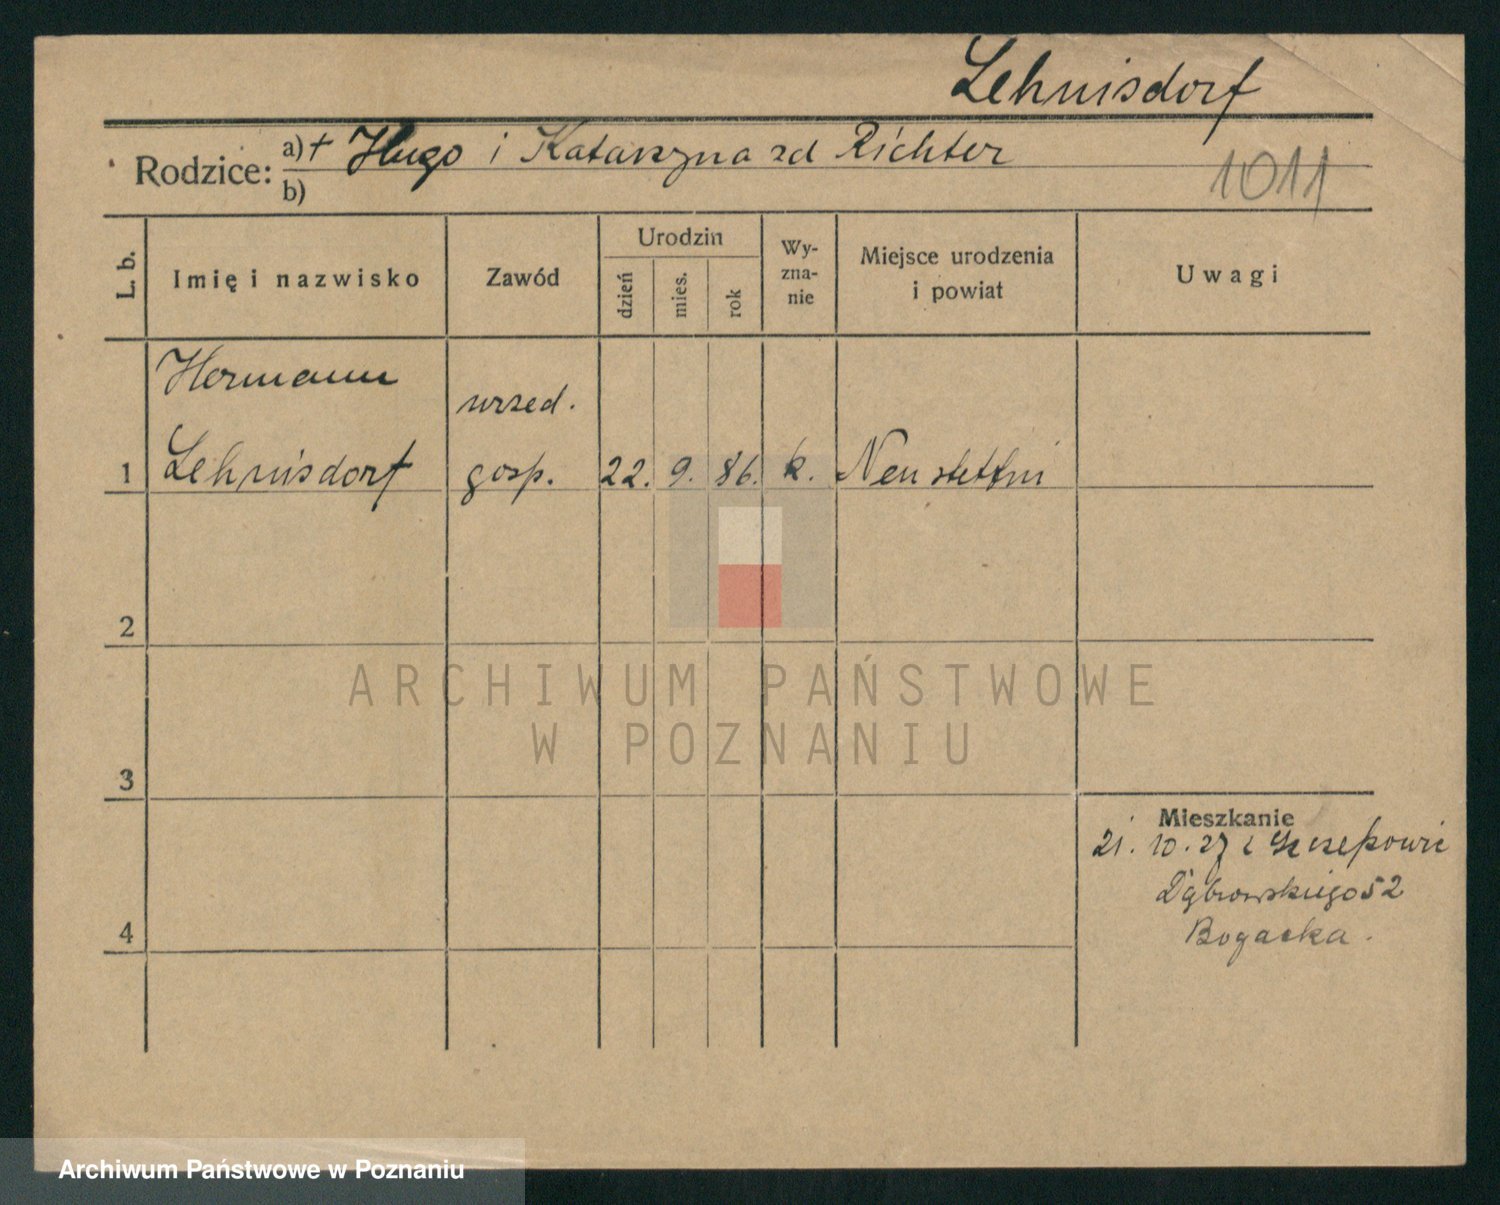 Lehnisdorf
Rodzice: a) + Hugo i Katarzyna zd Richter
b)
1011
L. b.
Imię i nazwisko
Zawód
Urodzin
dzień
mies.
rok
Wy-
zna-
nie
Miejsce urodzenia
i powiat
Uwagi
Hermann
urzed.
1 Lehnisdorf gosp. 22. 9. 86. k. Neustettni
2
ARCHIWUM PAŃSTWOWE
W POZNANIU
3
Mieszkanie
21. 10. 27 z
Dąbrowskiego 52
4
Bogacka.
Archiwum Państwowe w Poznaniu